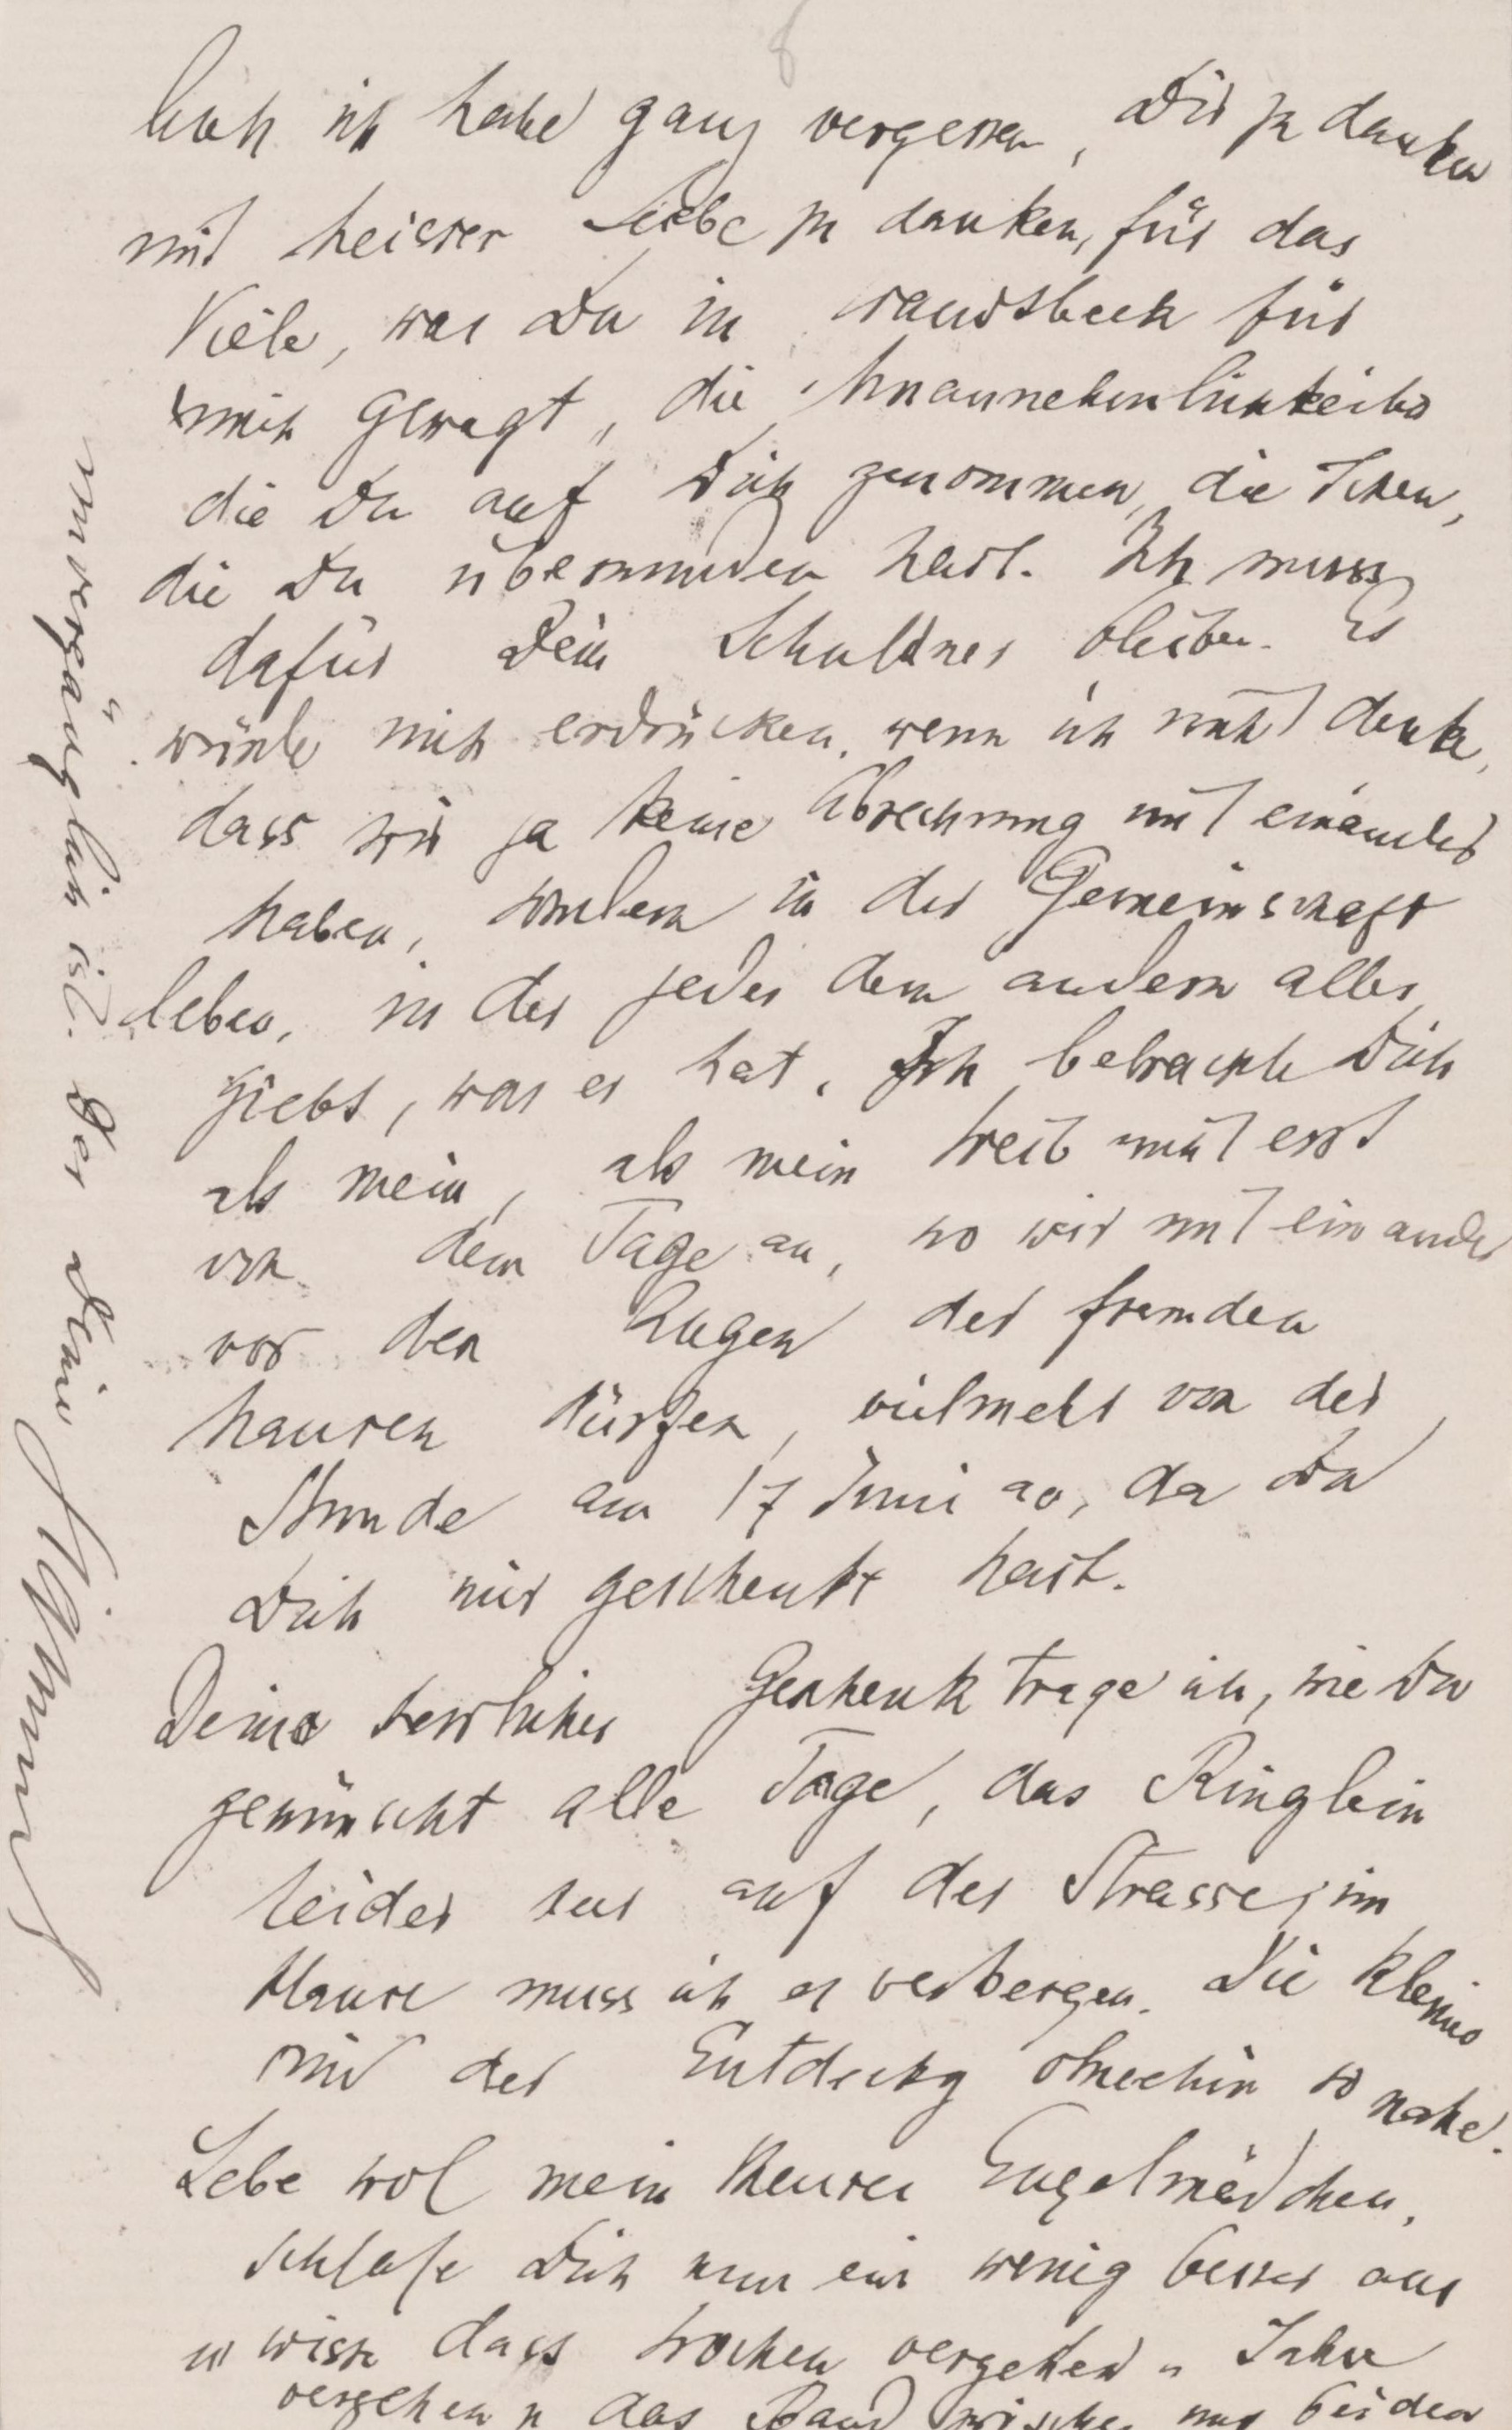 8
lich ich habe ganz vergessen, Dir zu danken
mit heisser Liebe zu danken, für das
Viele, was Du in Wandsbeck für
mich gewagt, die Unannehmlichkeiten
die Du auf Dich genommen, die Scheu,
die Du überwunden hast. Ich muss
dafür Dein Schuldner bleiben. Es
würde mich erdrücken, wenn ich nicht denke,
dass wir ja keine Abrechnung mit einander
haben, sondern in der Gemeinschaft
leben, in der jeder dem andern alles
giebt, was er hat. Ich betrachte Dich
als mein, als mein Weib nicht erst
von dem Tage an, wo wir mit einander
vor den Augen der fremden
hausen dürfen, vielmehr von der
Stunde am 17 Juni an, da Du
Dich mir geschenkt hast.
Dein herrliches Geschenk trage ich, wie Du
gewünscht alle Tage, das Ringlein
leider nur auf der Strasse, im
Hause muss ich es verbergen. Die Kleinen
sind der Entdeckg ohnehin so nahe.
Lebe wol mein theures Engelmädchen,
schlafe Dich nun ein wenig besser aus
u wisse dass Wochen vergehen u Jahre
vergehen u das Band zwischen uns beiden
unvergänglich ist. Der Deine
Sigmund